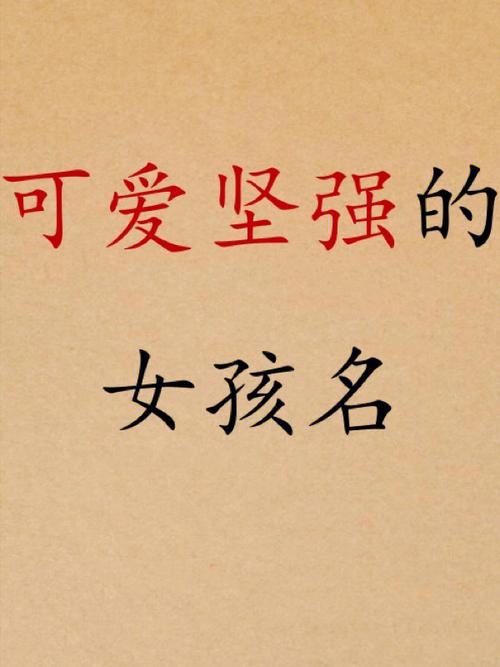 可爱坚强的
女孩名